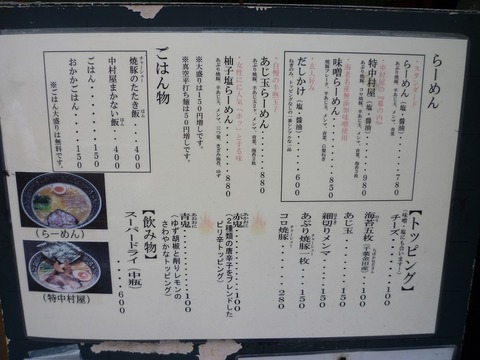 らーめん
・スタンダード
らーめん(塩・醤油)・・・・780
・中村屋の『幕の内』
特中村屋(塩・醤油)・・・・980
味噌らーめん・・・・850
・玄人好み
だしかけ(塩・醤油)・・・・600
・自慢の半熟玉子
あじ玉らーめん・・・・850
柚子塩らーめん・・・・880
※大盛りは150円増しです。
※真空平打ち麺は50円増しです。
ごはん物
焼豚のたたき飯・・・・400
中村屋まかない飯・・・・400
ごはん・・・・150
おかかごはん・・・・150
(※ごはん大盛りは無料です。)
【トッピング】
チーズ・・・・100
海苔五枚・・・・100
あじ玉・・・・100
細切りメンマ・・・・150
あぶり焼豚一枚・・・・150
コロ焼豚・・・・280
赤鬼・・・・100
(2種類の唐辛子をブレンドした
ピリ辛トッピング)
青鬼・・・・100
(ゆず胡椒と削りレモンの
さわやかなトッピング)
【飲み物】
スーパードライ(中瓶)
・・・・600
(らーめん)
(特中村屋)